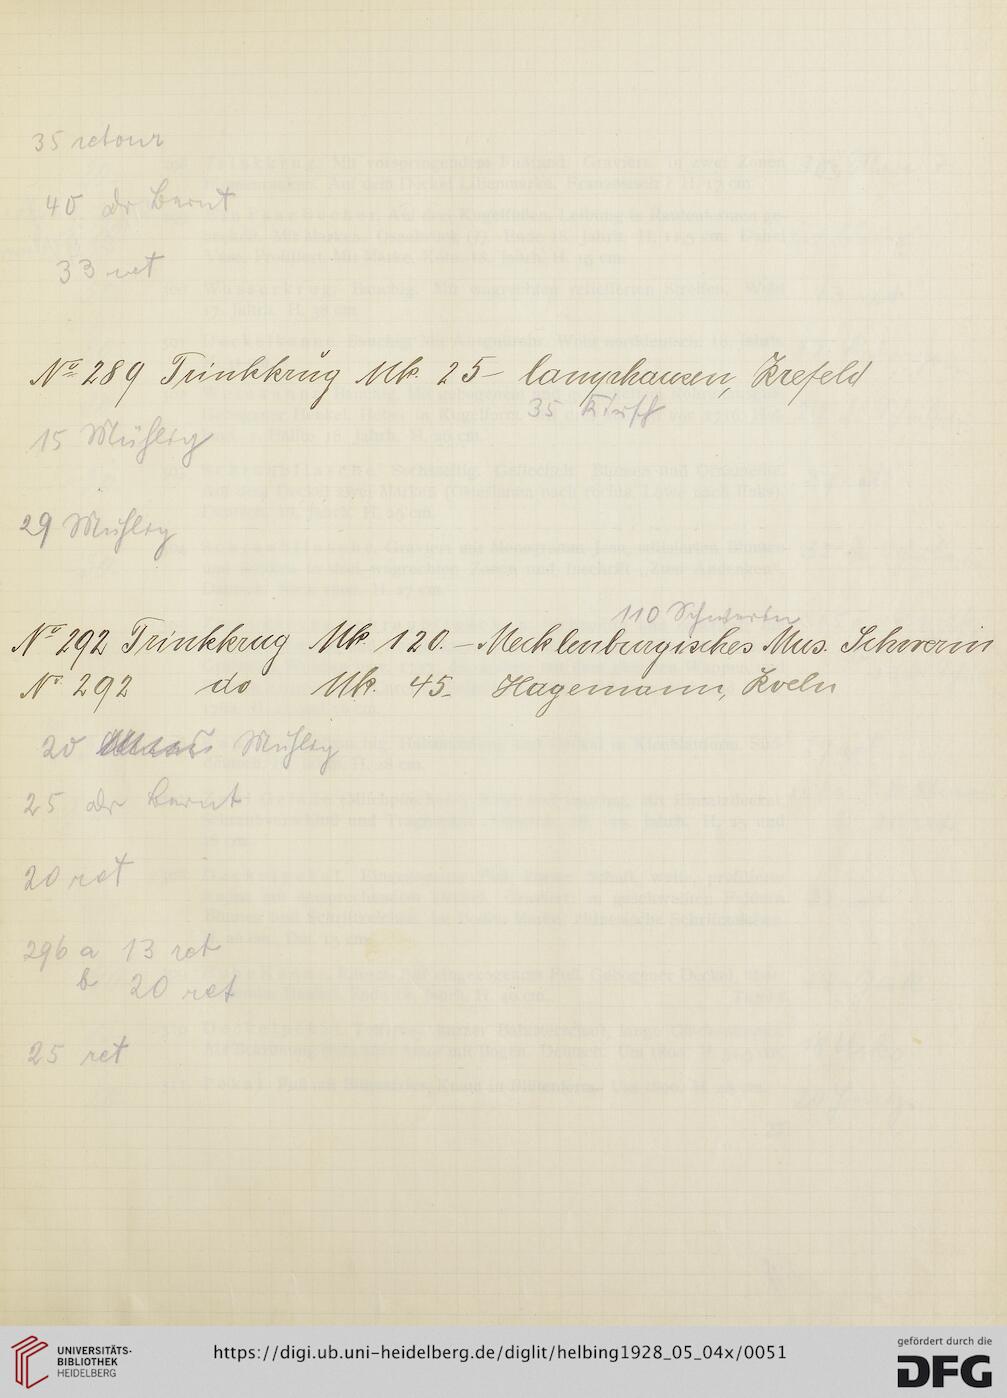 35 retour
40 Dr Bernt
33 ret
No 289 Trinkkrug Mk. 25- Camphausen, Krefeld
35 Kirsch
15 Mühlig
29 Mühlig
110 Schwerin
No 292 Trinkkrug Mk 120.- Mecklenburgisches Mus. Schwerin
No 292 do Mk. 45- Hagemann, Koeln
20 Mühlig
25 Dr Bernt
20 ret
296 a 13 ret
b 20 ret
25 ret
UNIVERSITÄTS-
BIBLIOTHEK
HEIDELBERG
https://digi.ub.uni-heidelberg.de/diglit/helbing1928_05_04x/0051
gefördert durch die
DFG